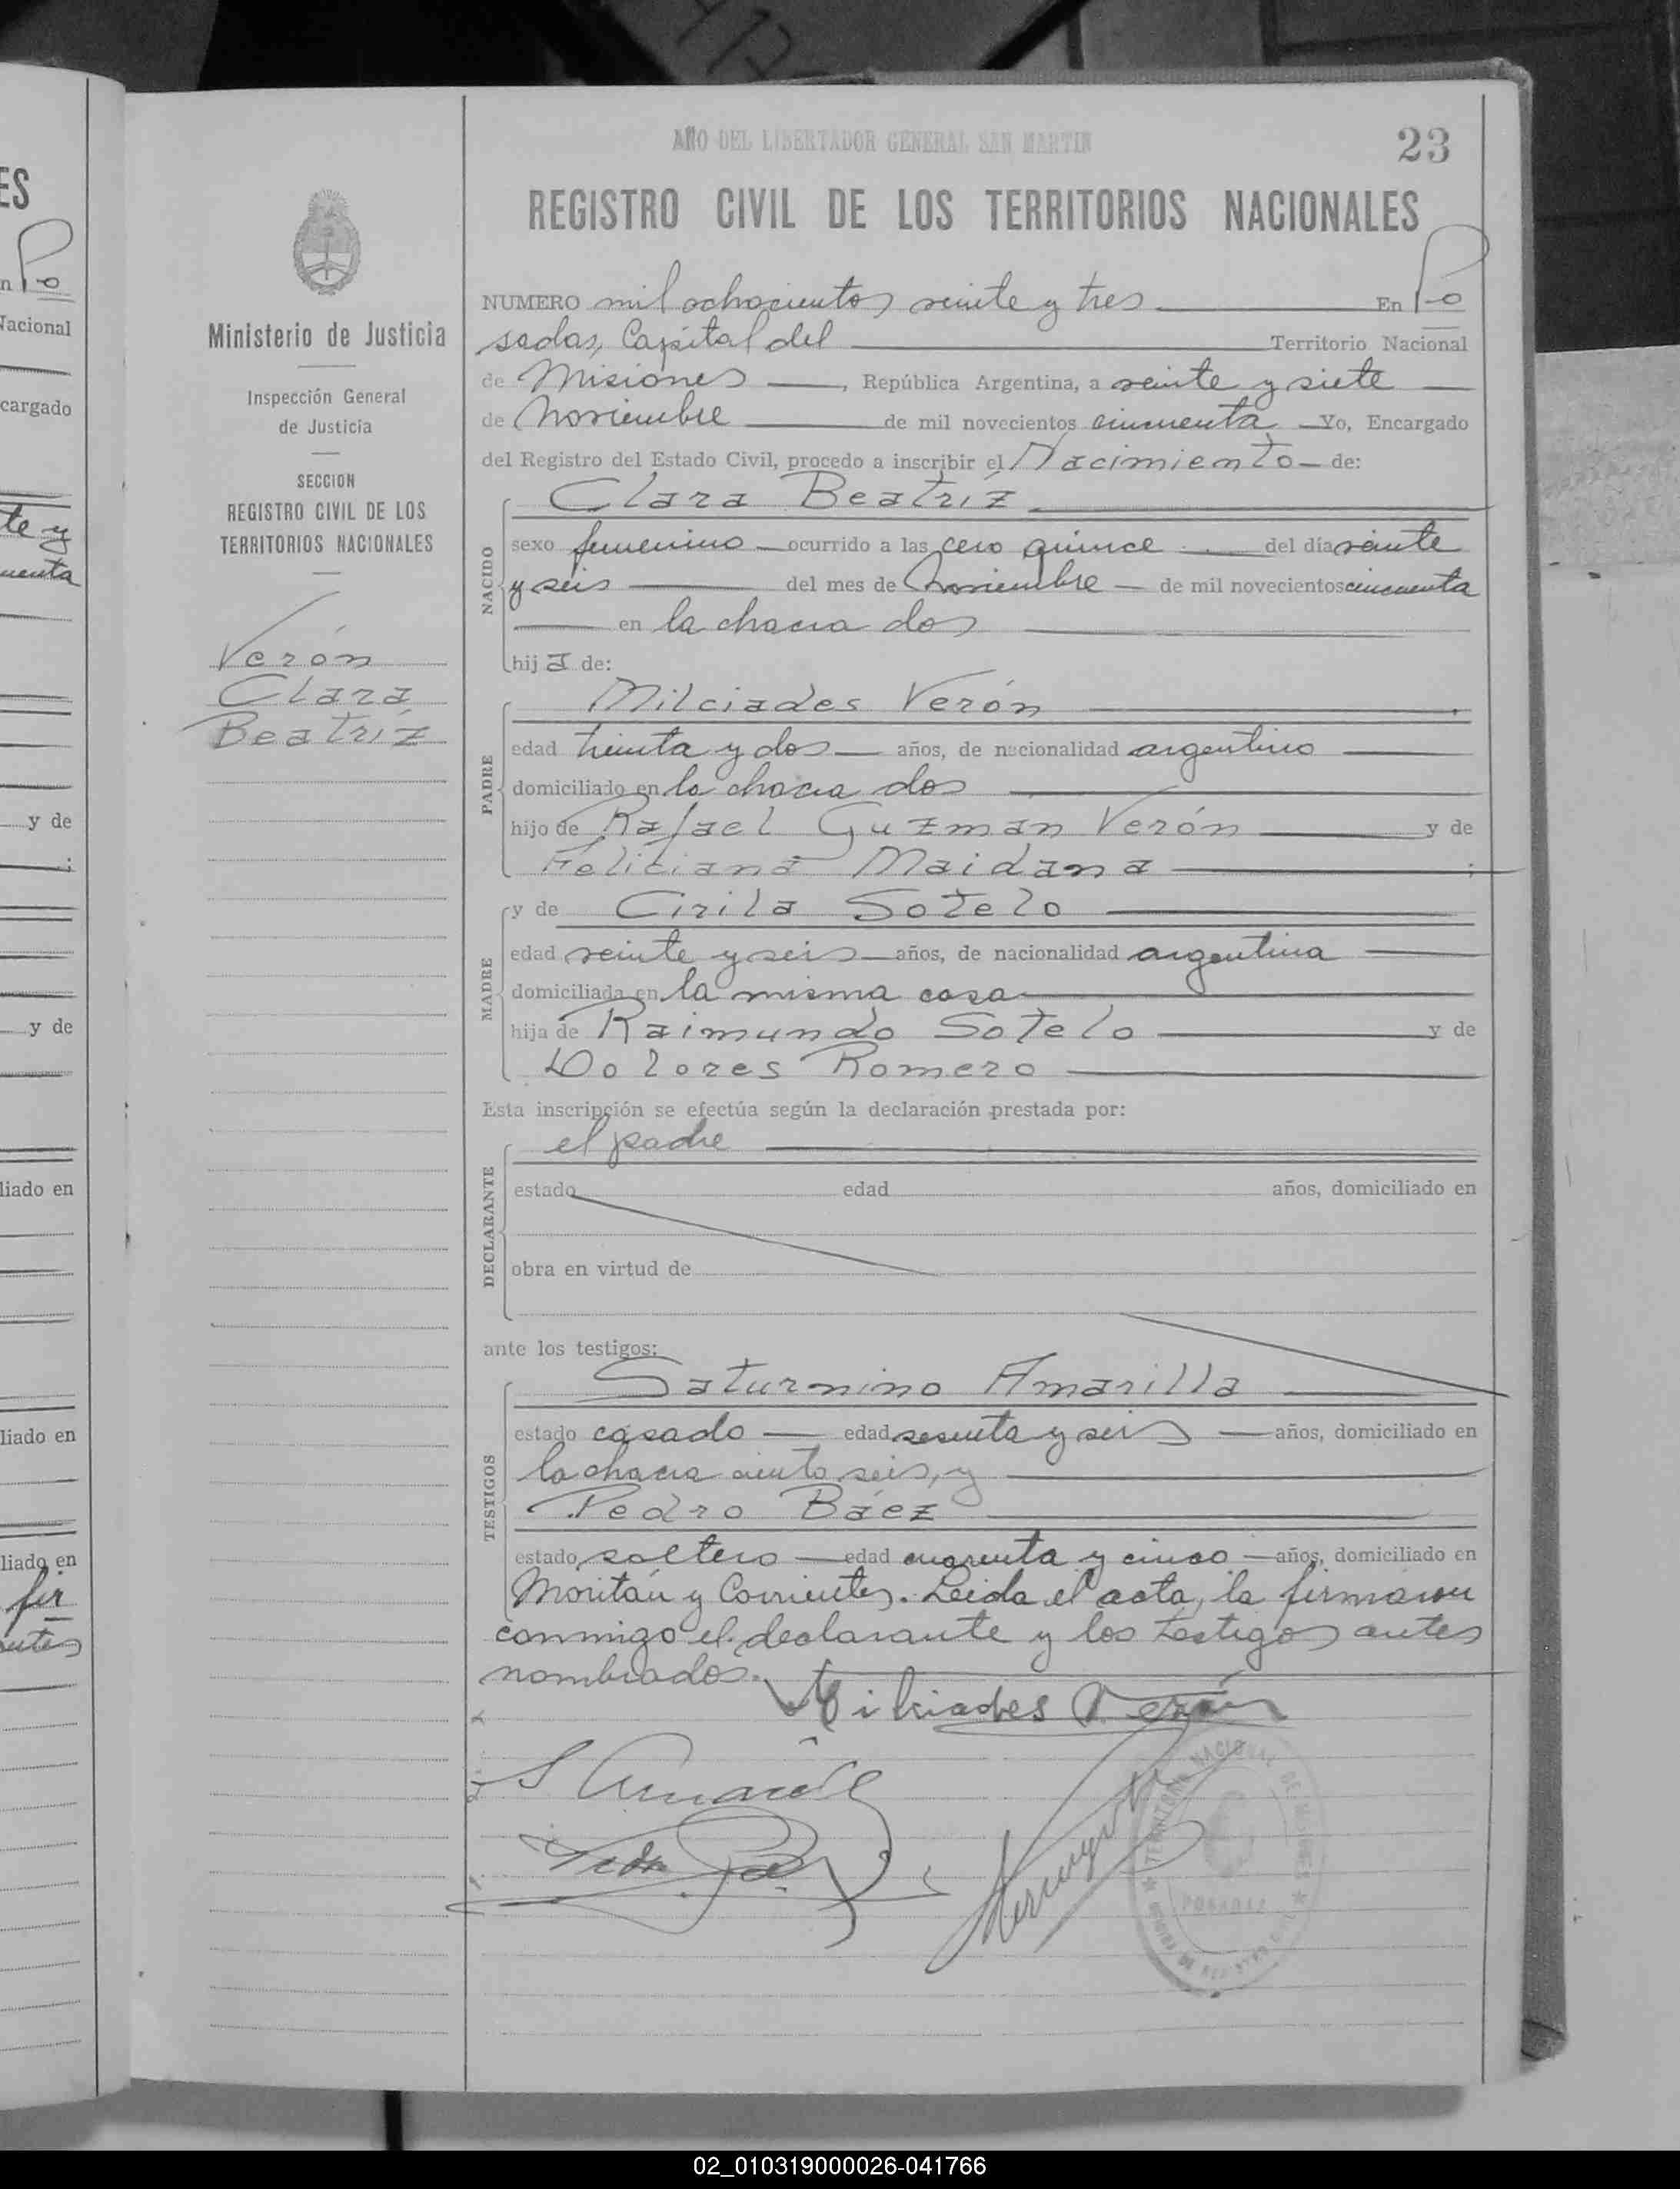 AÑO DEL LIBERTADOR GENERAL SAN MARTIN
23
REGISTRO CIVIL DE LOS TERRITORIOS NACIONALES
Ministerio de Justicia
Inspección General
de Justicia
SECCION
REGISTRO CIVIL DE LOS
TERRITORIOS NACIONALES
Verón
Clara
Beatríz
NUMERO mil ochocientos veinte y tres En Po
sadas, Capital del Territorio Nacional
de Misiones, República Argentina, a veinte y siete
de Noviembre de mil novecientos cincuenta Yo, Encargado
del Registro del Estado Civil, procedo a inscribir el Nacimiento de:
NACIDO
Clara Beatríz
sexo femenino ocurrido a las cero quince del día veinte
y seis del mes de Noviembre de mil novecientos cincuenta
en la chacra dos
hija de:
PADRE
Milciades Verón
edad treinta y dos años, de nacionalidad argentino
domiciliado en la chacra dos
hijo de Rafael Guzman Verón y de
Feliciana Maidana ;
MADRE
y de Cirila Sotelo
edad veinte y seis años, de nacionalidad argentina
domiciliada en la misma casa
hija de Raimundo Sotelo y de
Dolores Romero
Esta inscripción se efectúa según la declaración prestada por:
DECLARANTE
el padre
estado edad años, domiciliado en
obra en virtud de
ante los testigos:
TESTIGOS
Saturnino Amarilla
estado casado edad sesenta y seis años, domiciliado en
la chacra ciento seis, y
Pedro Báez
estado soltero edad cuarenta y cinco años, domiciliado en
Moritán y Corrientes. Leida el acta, la firmaron
conmigo el declarante y los testigos antes
nombrados.
Milciades Verón
S Amarilla
Pedro Báez
TERRITORIO NACIONAL DE MISIONES
POSADAS
ES
n Po
Nacional
cargado
te y
uenta
y de
;
y de
liado en
liado en
liado en
fir
antes
02_010319000026-041766